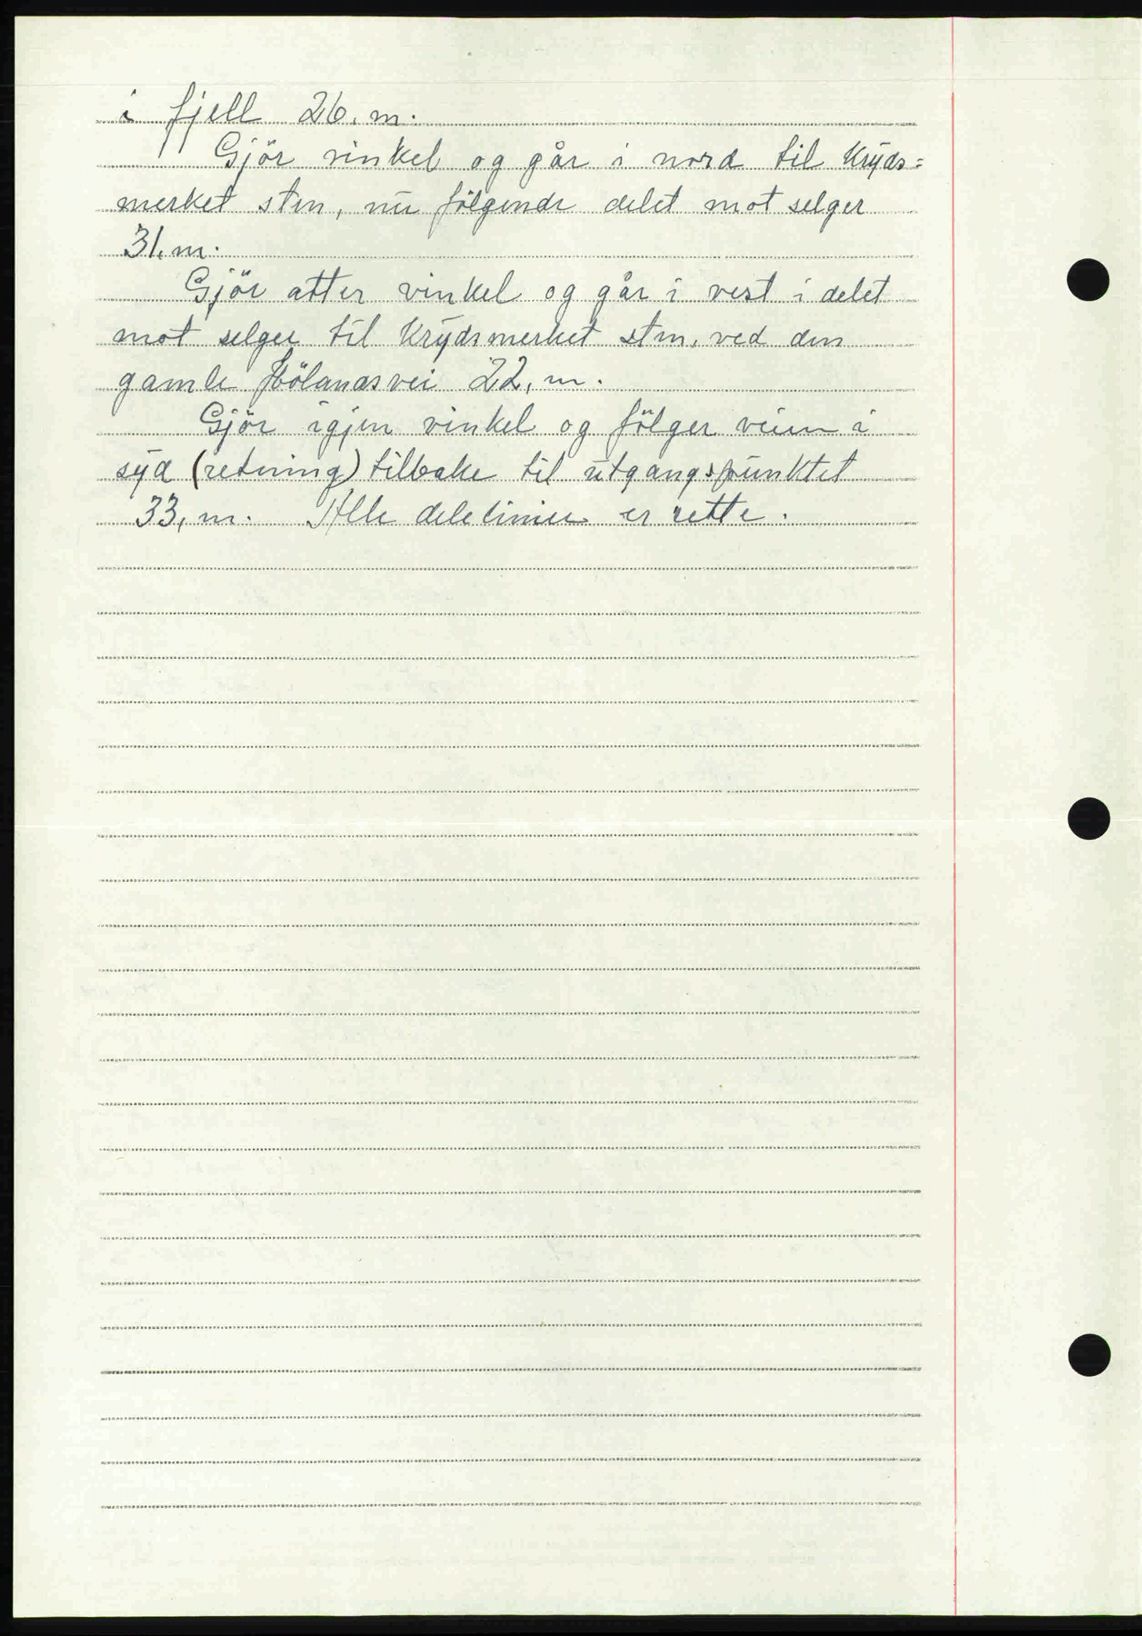 i fjell 26, m.
Gjör vinkel og går i nord til Kryds=
merket sten, nu fölgende delet mot selger
31, m.
Gjör atter vinkel og går i vest i delet
mot selger til Krydsmerket sten, ved den
gamle Hölandsvei 22, m.
Gjör igjen vinkel og fölger veien i
syd (retning) tilbake til utgangspunktet
33, m. Alle delelinier er rette.